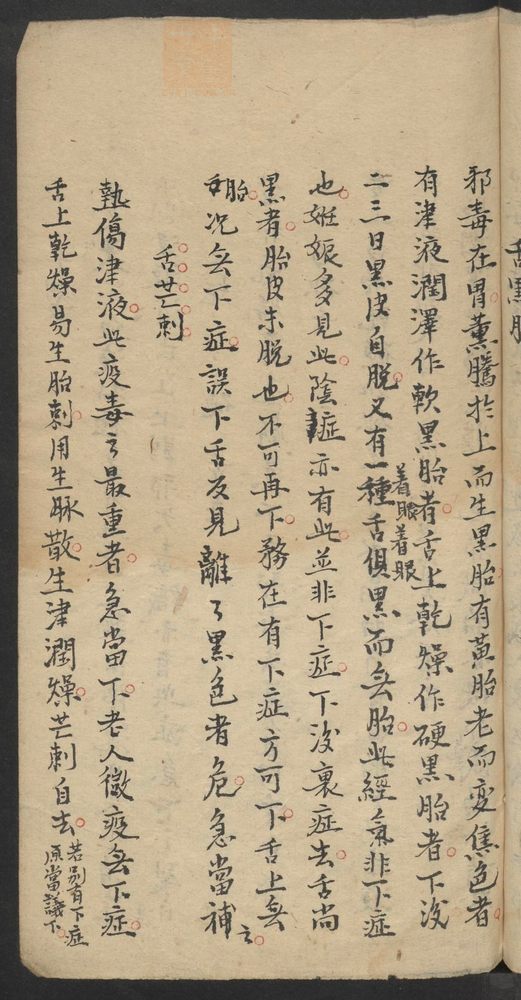 舌黑胎
邪毒在胃薰騰於上而生黑胎有黃胎老而變焦色者
有津液潤澤作軟黑胎者舌上乾燥作硬黑胎者下後
二三日黑皮自脫又有一種舌俱黑而無胎此經氣非下症
着眼着眼
也姙娠多見此陰症亦有此並非下症下後裏症去舌尚
黑者胎皮未脫也不可再下務在有下症方可下舌上無
胎况無下症誤下舌反見離々黑色者危急當補之
舌芒刺
熱傷津液此疫毒之最重者急當下老人微疫無下症
舌上乾燥易生胎刺用生脉散生津潤燥芒刺自去若別有下症
原當議下